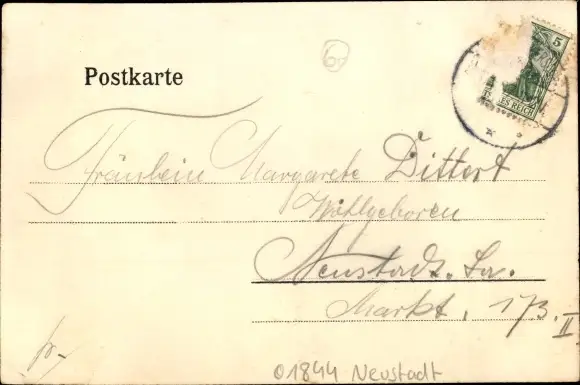 6.-
5
ES REICH
Postkarte
Fräulein Margarete Dittert
Wohlgeboren
Neustadt. Sa.
Markt, 173. II
fr-
01844 Neustadt